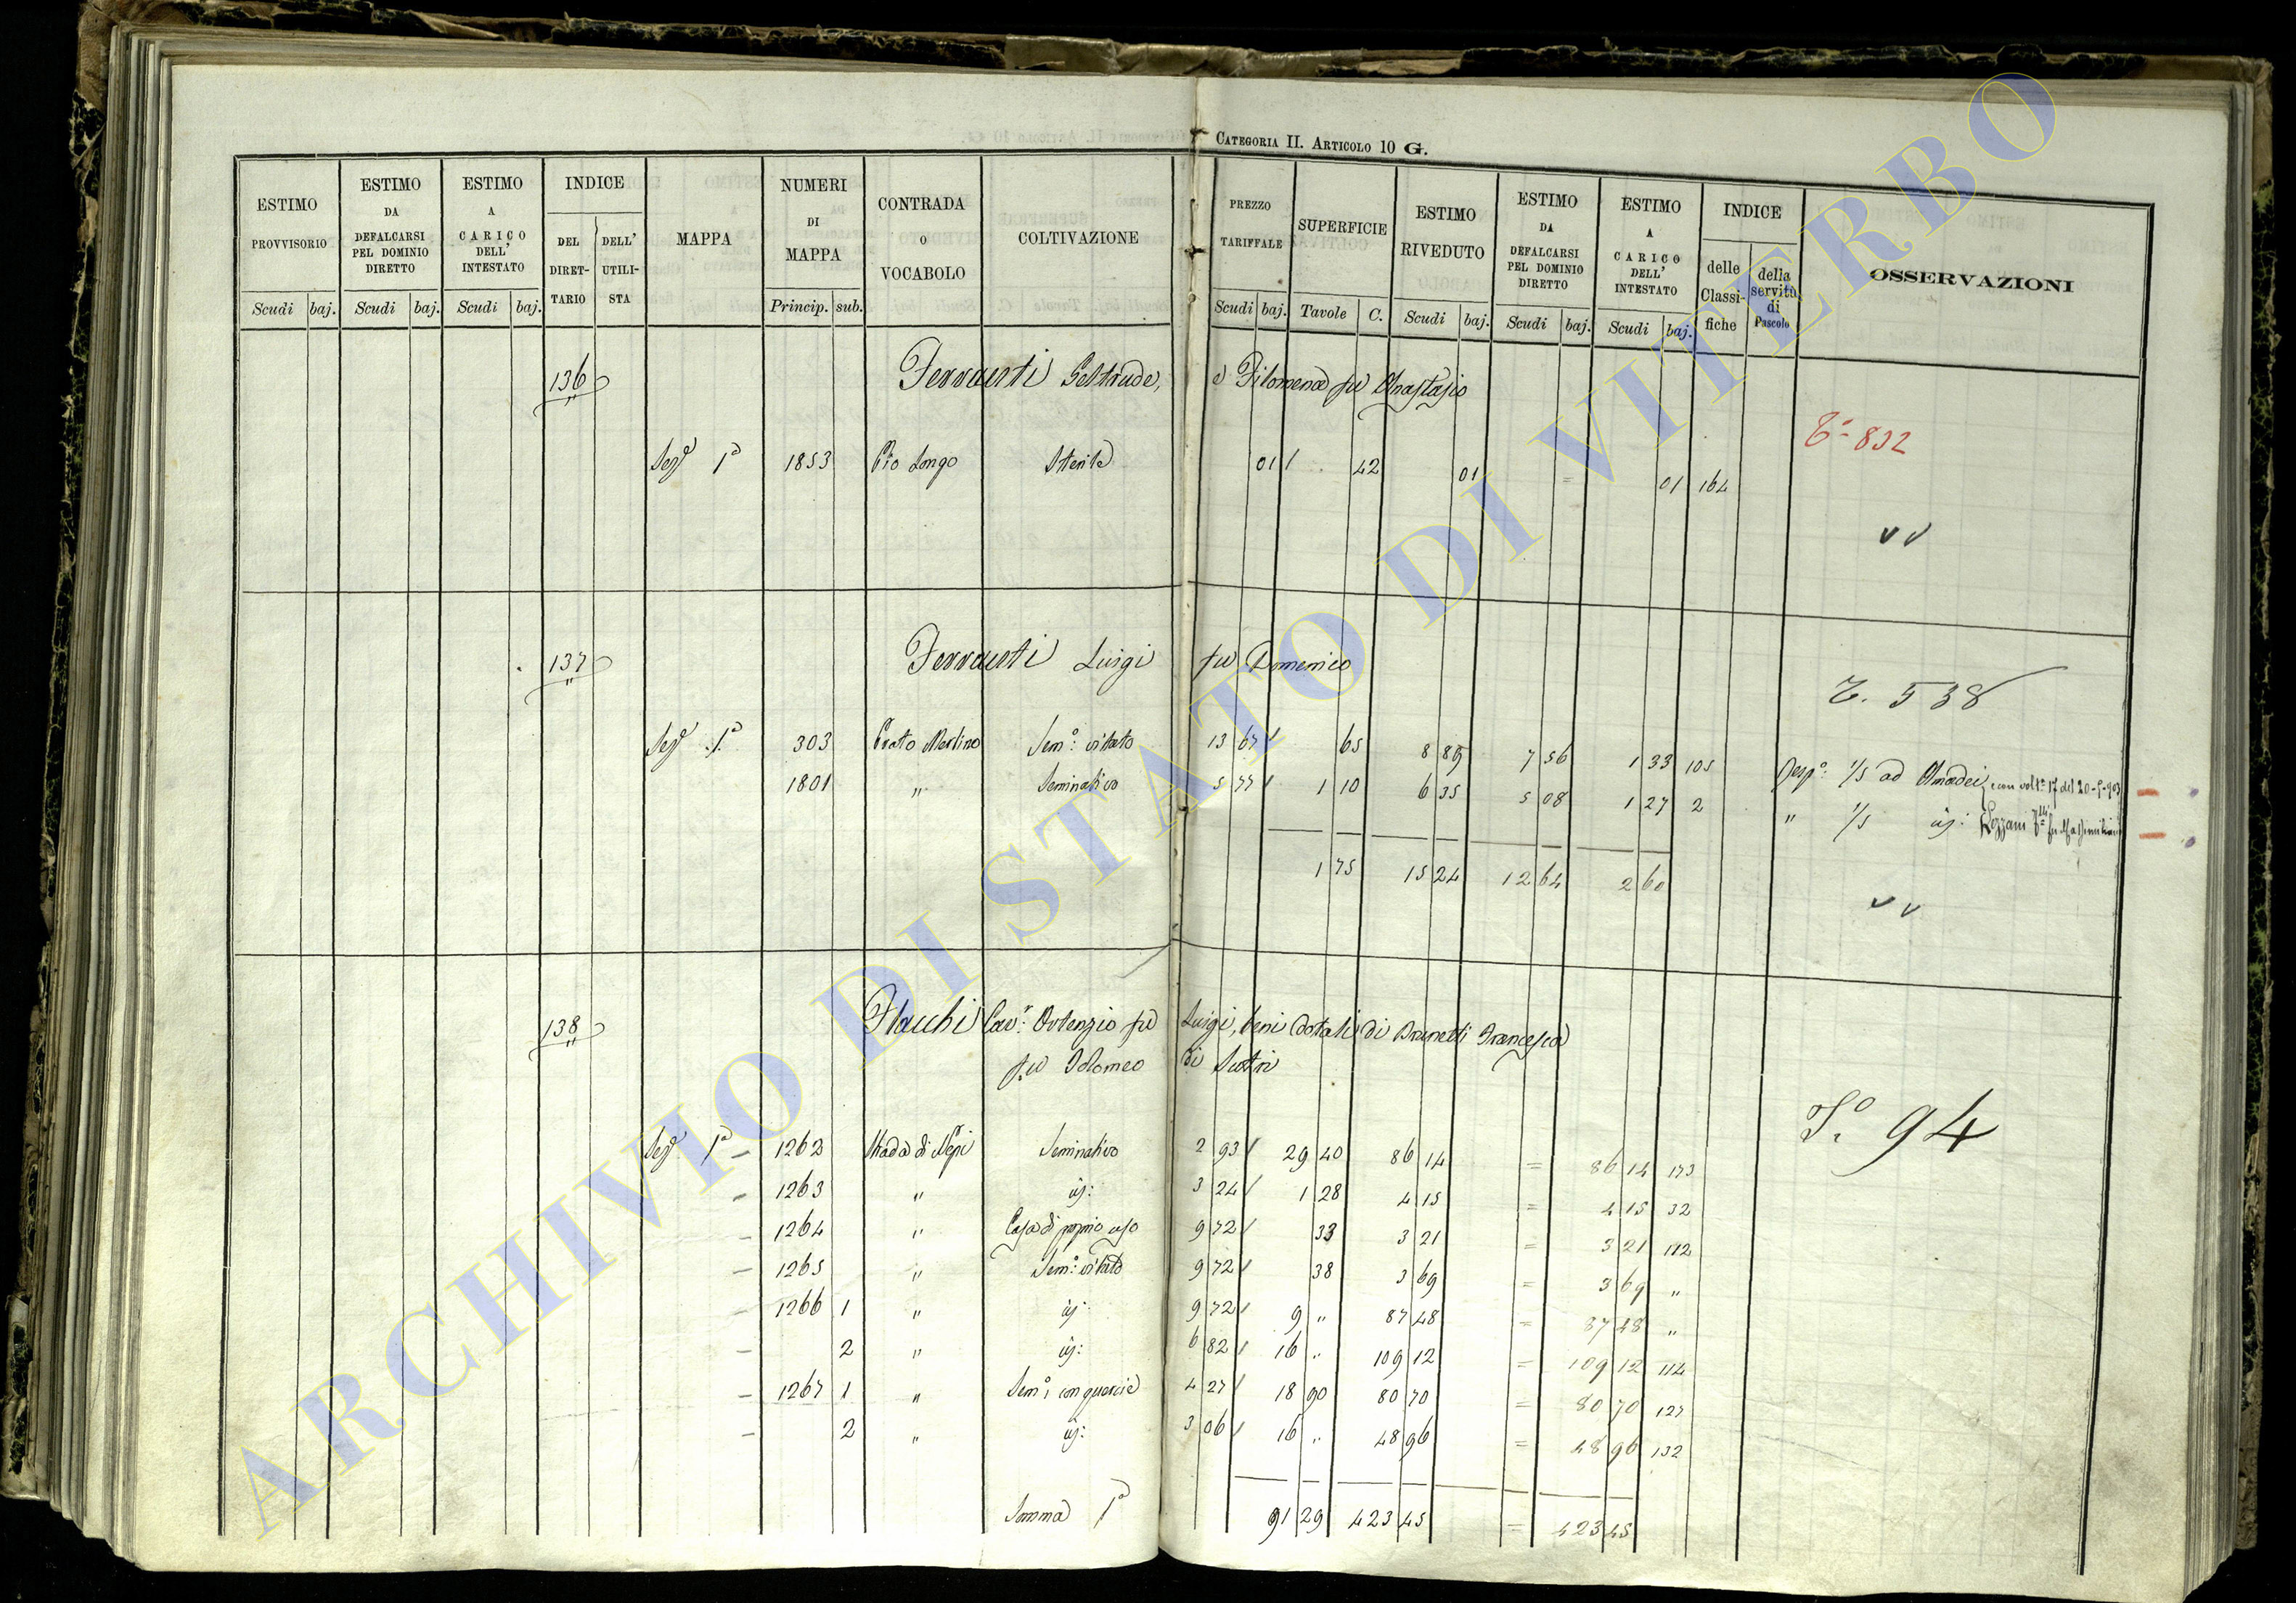 CATEGORIA II. ARTICOLO 10 G.
ESTIMO PROVVISORIO Scudi baj.
ESTIMO DA DEFALCARSI PEL DOMINIO DIRETTO Scudi baj.
ESTIMO A CARICO DELL' INTESTATO Scudi baj.
INDICE DEL DIRETTARIO DELL' UTILISTA
MAPPA
NUMERI DI MAPPA Princip. sub.
CONTRADA O VOCABOLO
COLTIVAZIONE
PREZZO TARIFFALE Scudi baj.
SUPERFICIE Tavole C.
ESTIMO RIVEDUTO Scudi baj.
ESTIMO DA DEFALCARSI PEL DOMINIO DIRETTO Scudi baj.
ESTIMO A CARICO DELL' INTESTATO Scudi baj.
INDICE delle Classifiche della servitù di Pascolo
OSSERVAZIONI
136 Ferranti Geltrude, e Filomena fu Anastasio
Tº 832
Sezº 1ª 1853 Pio Longo Sterile 01 42 01 = 01 164
137 Ferranti Luigi fu Domenico
T. 538
Sezº 1ª 303 Prato Merlino Semº: vitato 13 67 65 8 89 7 56 1 33 105 Respº: 1/5 ad Amadei e con volª 17 del 20-5-903
1801 " Seminativo 5 77 1 10 6 35 5 08 1 27 2 " 1/5 id: Lozzani fu Massimiliano
1 75 15 24 12 64 2 60
138 Flacchi Cavº: Ortenzio fu Luigi, beni dotali di Brunetti Francesca
fu Tolomeo di Sutri
Tº. 94
Sezº 1ª 1262 Strada di Nepi Seminativo 2 93 29 40 86 14 = 86 14 173
1263 " id: 3 24 1 28 4 15 = 4 15 32
1264 " Casa di proprio uso 9 72 33 3 21 = 3 21 112
1265 " Semº: vitato 9 72 38 3 69 = 3 69 "
1266 1 " id: 9 72 9 " 87 48 = 87 48 "
2 " id: 6 82 16 " 109 12 = 109 12 114
1267 1 " Semº: con quercie 4 27 18 90 80 70 = 80 70 127
2 " id: 3 06 16 " 48 96 = 48 96 132
Somma 1ª 91 29 423 45 = 423 45
ARCHIVIO DI STATO DI VITERBO